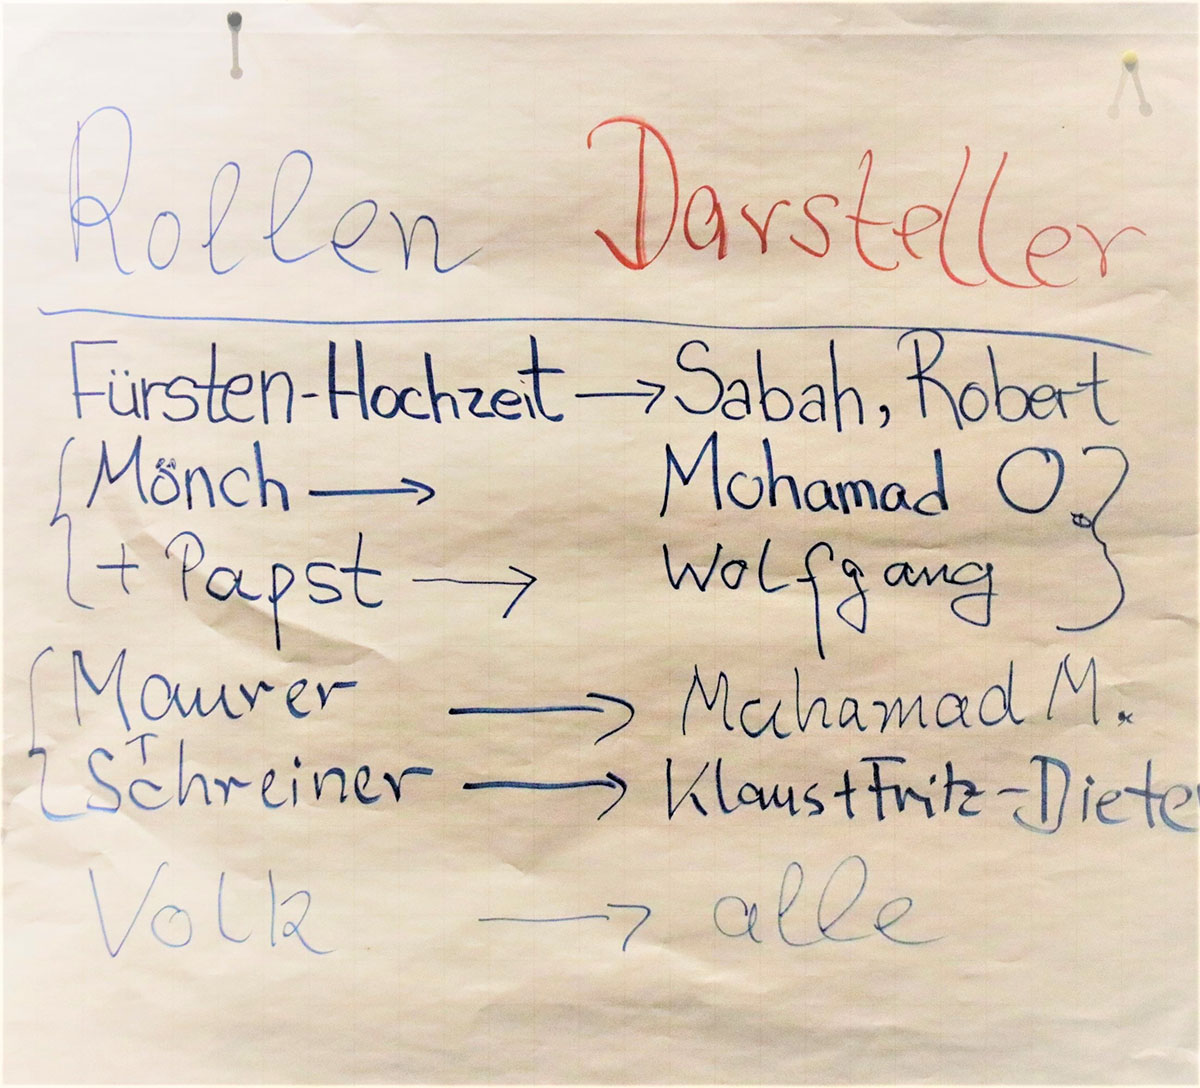 Rollen Darsteller
Fürsten-Hochzeit → Sabah, Robert
Mönch → Mohamad O.
+ Papst → Wolfgang
Maurer → Muhamad M.
Schreiner → Klaus + Fritz-Dieter
Volk → alle